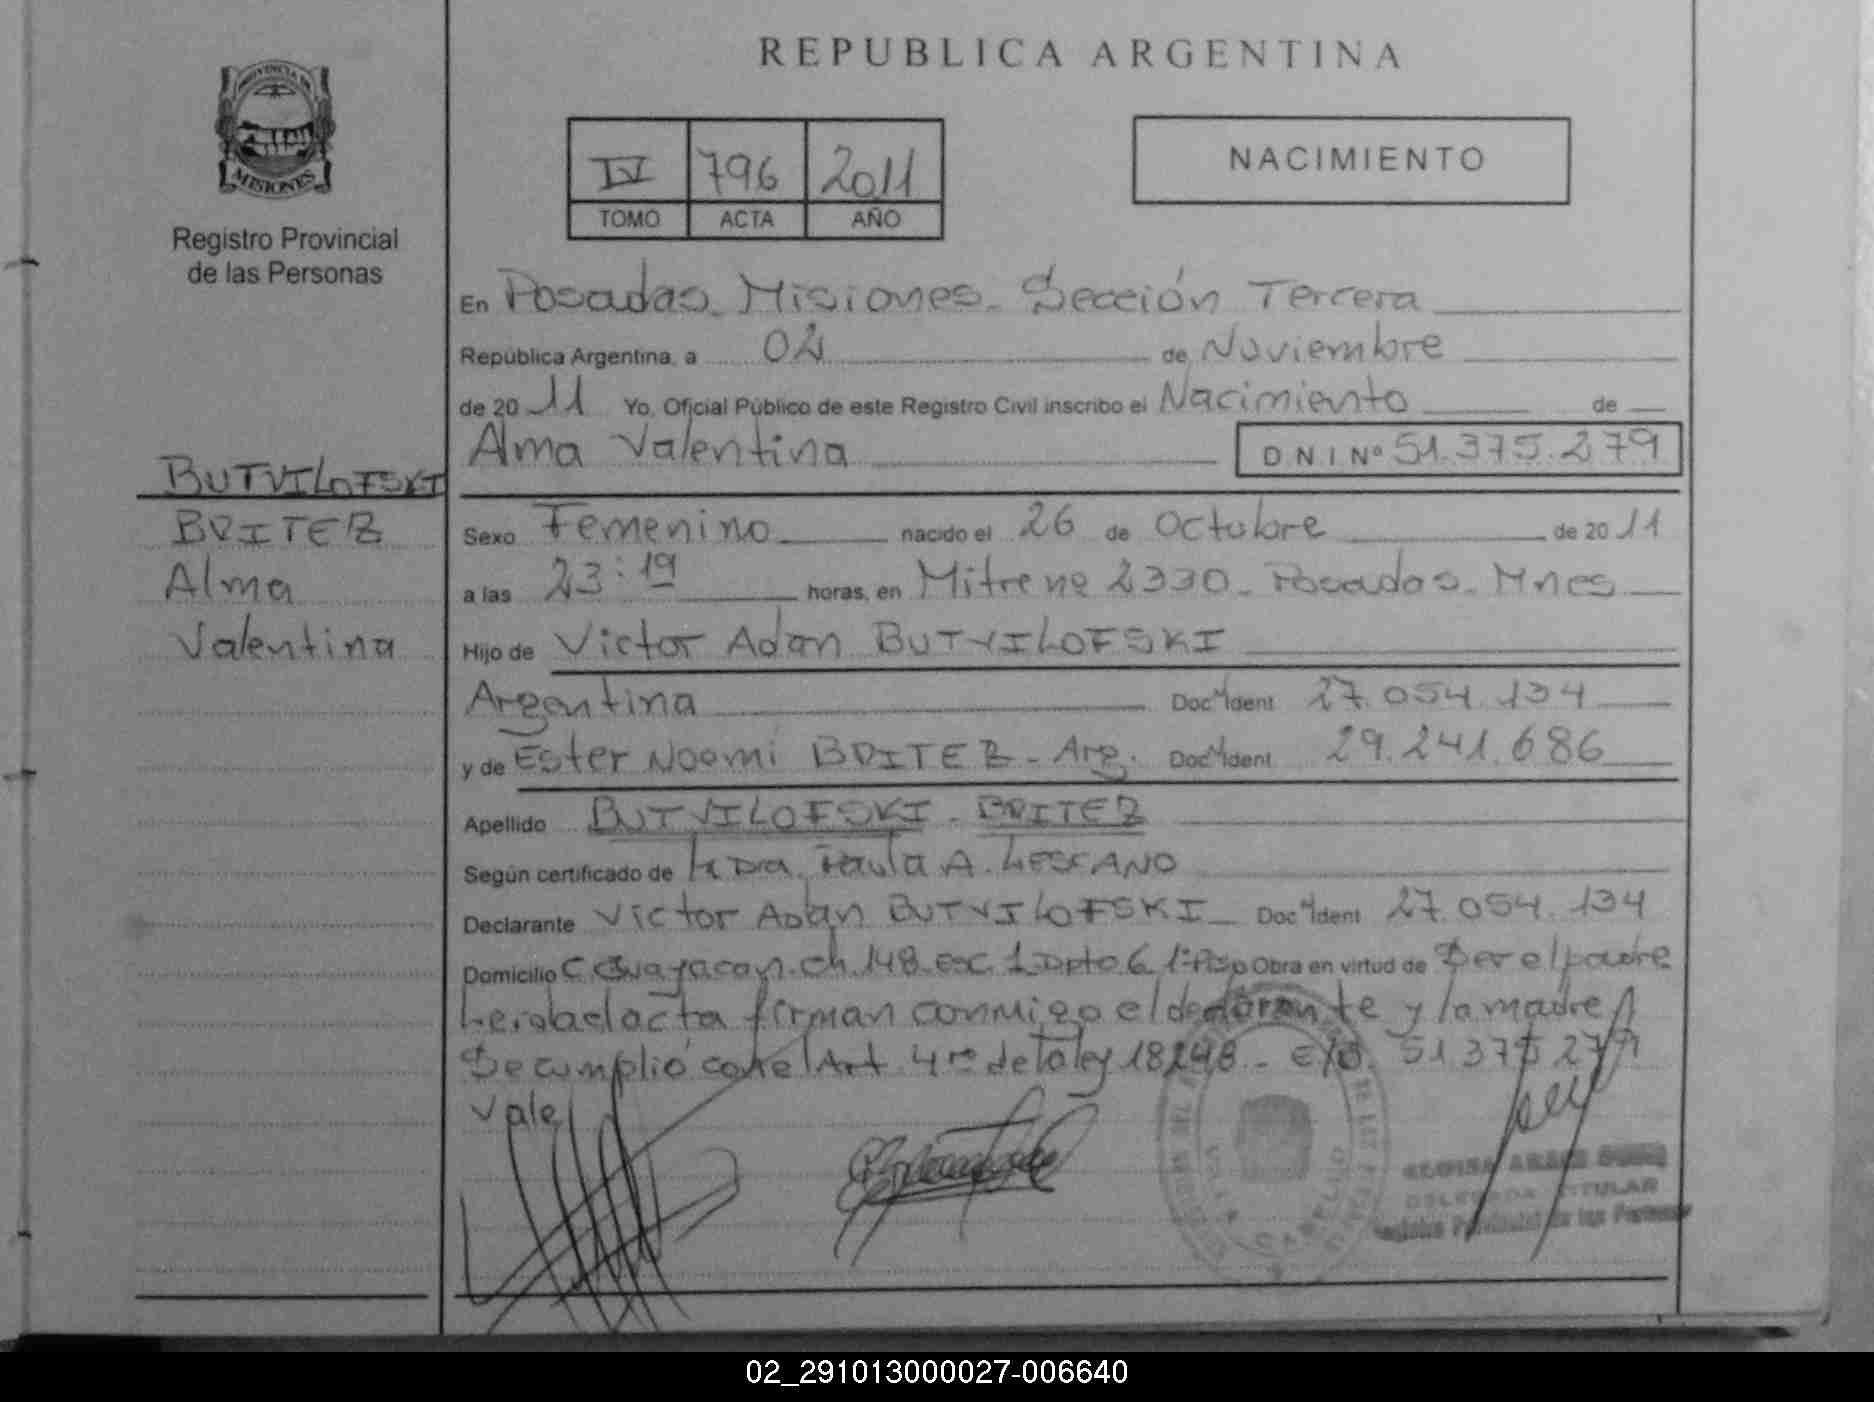 REPUBLICA ARGENTINA
PROVINCIA DE
MISIONES
Registro Provincial
de las Personas
IV 796 2011
TOMO ACTA AÑO
NACIMIENTO
En Posadas Misiones Sección Tercera
República Argentina, a 02 de Noviembre
de 2011 Yo, Oficial Público de este Registro Civil inscribo el Nacimiento de
Alma Valentina D.N.I Nº 51.375.279
BUTVILOFSKI
BRITEZ
Alma
Valentina
Sexo Femenino nacido el 26 de Octubre de 2011
a las 23:19 horas, en Mitre nº 2330 - Posadas - Mnes
Hijo de Victor Adan BUTVILOFSKI
Argentina Doc Ident 27.054.134
y de Ester Noemi BRITEZ - Arg. Doc Ident 29.241.686
Apellido BUTVILOFSKI - BRITEZ
Según certificado de Dra. Paula A. LESCANO
Declarante Victor Adan BUTVILOFSKI Doc Ident 27.054.134
Domicilio C. Guayacan. ch. 148. esc. 1 Dpto 6 1º Obra en virtud de Ser el padre
Leida el acta firman conmigo el declarante y la madre
Se cumplió con el Art. 4 de la ley 18248 - 51.375.279
Vale
DELEGADA TITULAR
Registro Provincial de las Personas
02_291013000027-006640